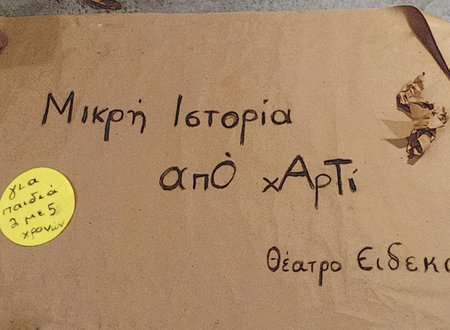 Μικρή Ιστορία
από χΑρΤί
για
παιδιά
2 με 5
χρονών
Θέατρο